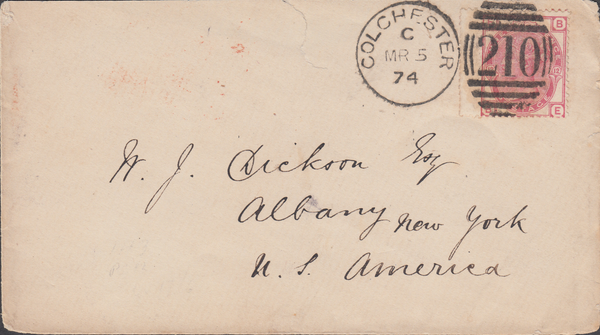 COLCHESTER
C
MR 5
74
210
B
E
W. J. Dickson Esq
Albany New York
U. S. America